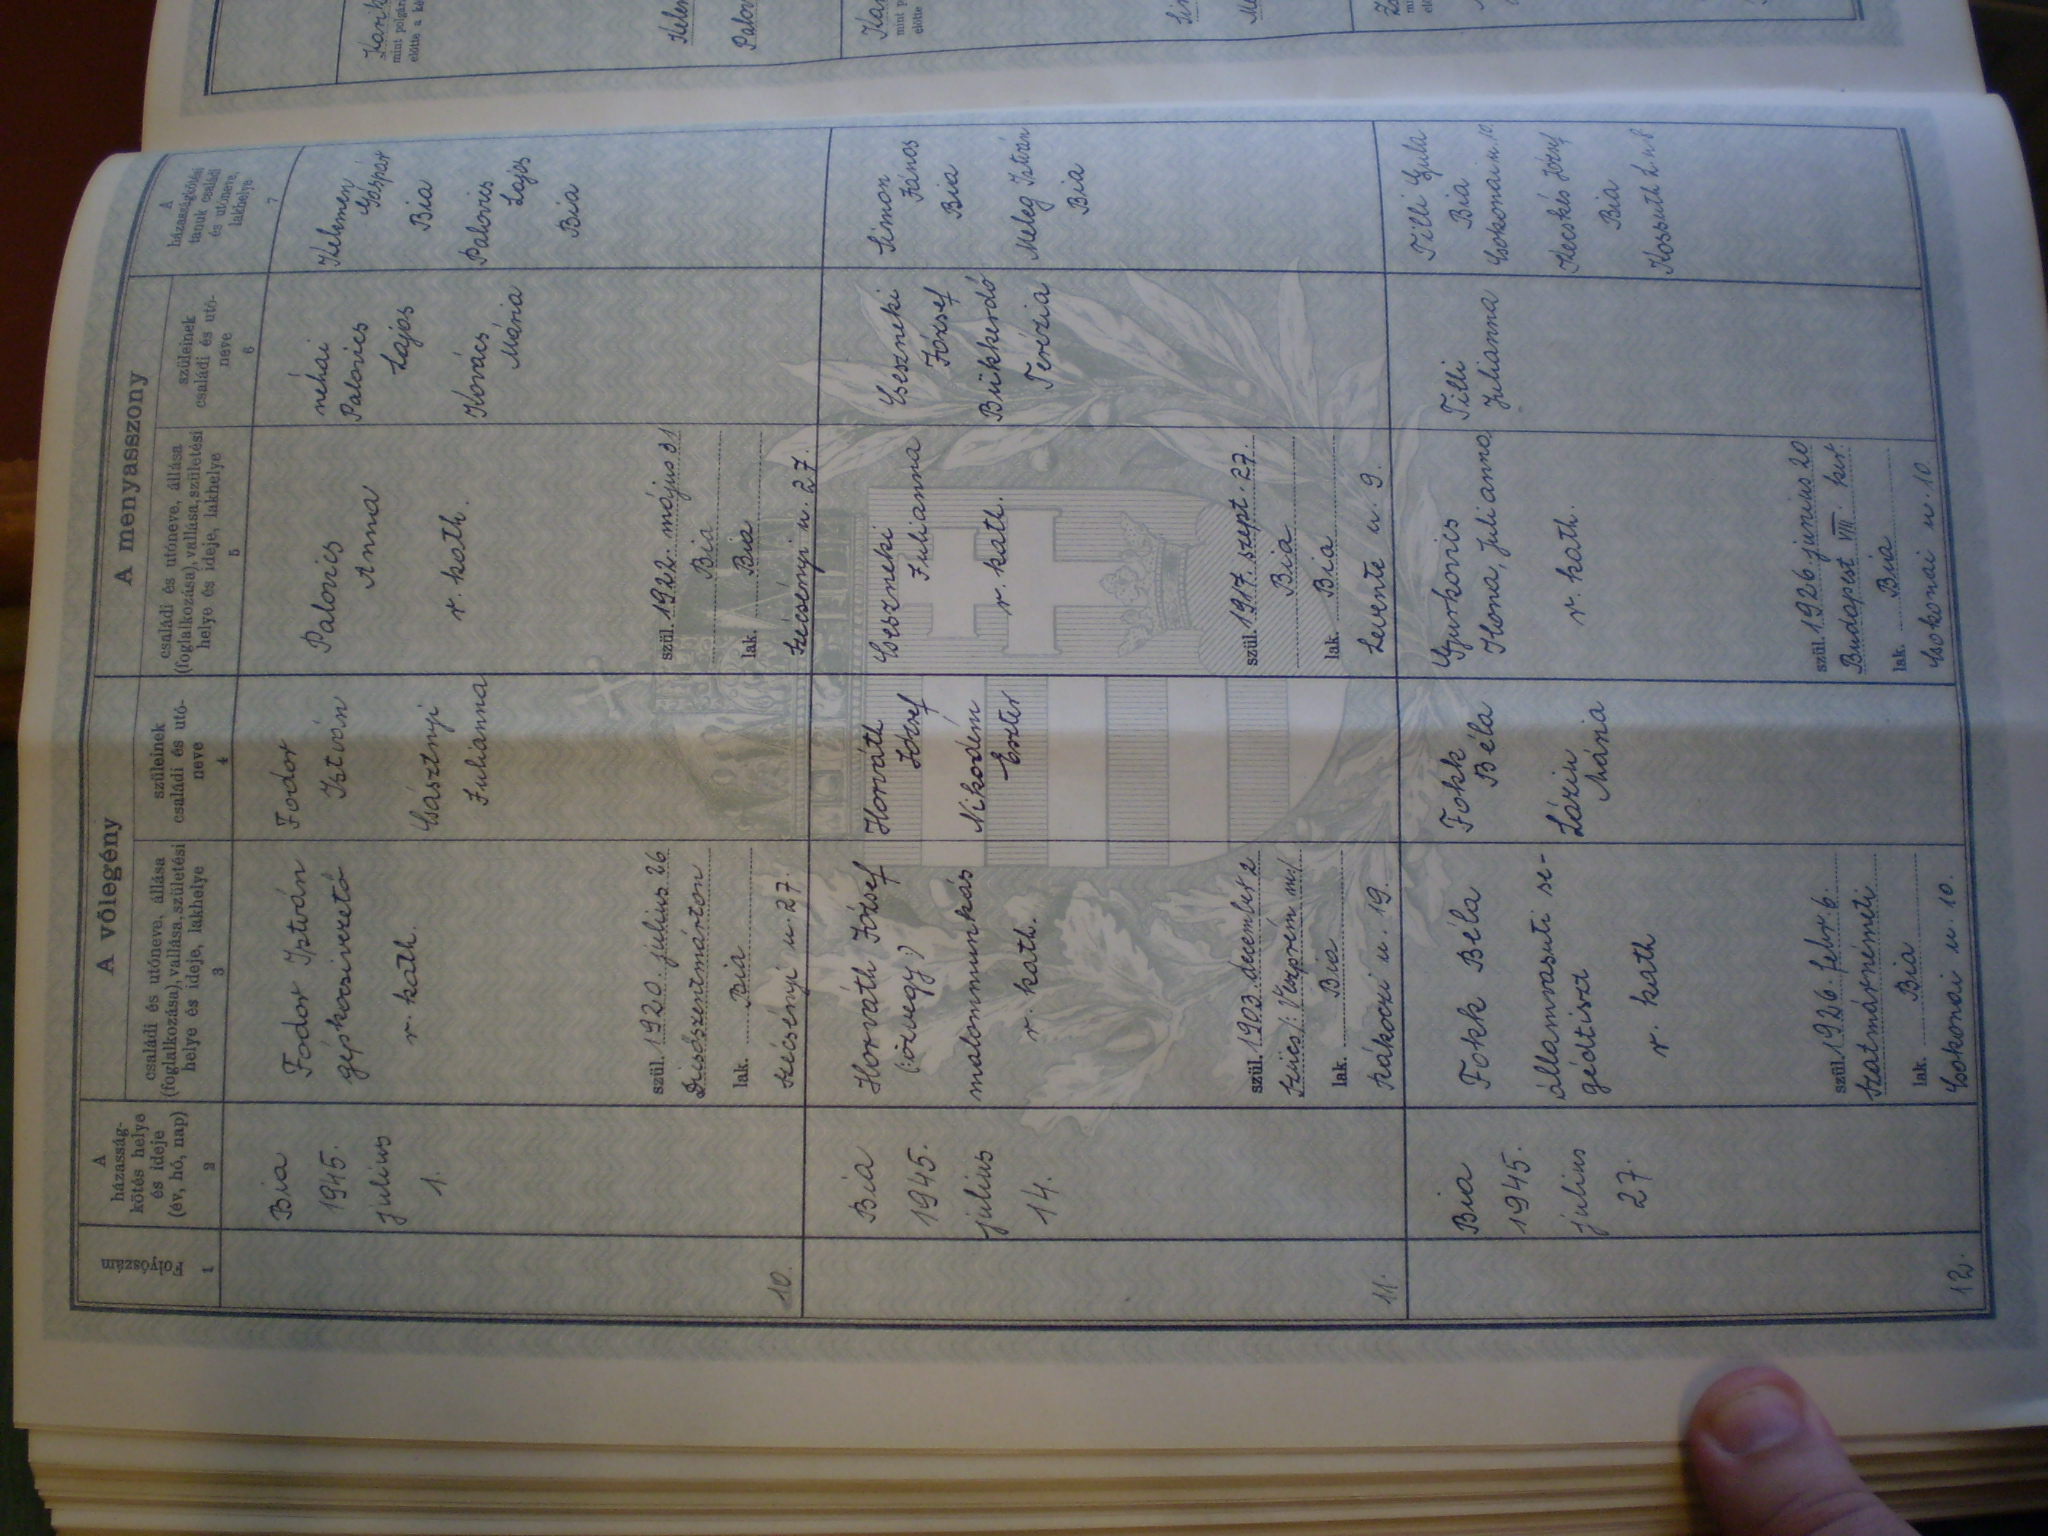 A vőlegény
A menyasszony
Folyószám
1
A
házasság-
kötés helye
és ideje
(év, hó, nap)
2
családi és utóneve, állása
(foglalkozása), vallása, születési
helye és ideje, lakhelye
3
szüleinek
családi és utó-
neve
4
családi és utóneve, állása
(foglalkozása), vallása, születési
helye és ideje, lakhelye
5
szüleinek
családi és utó-
neve
6
A
házasságkötési
tanuk családi
és utóneve,
lakhelye
7
10.
Bia
1945.
julius
1.
Fodor István
gépkocsivezető
r. kath.
szül. 1920. julius 26
Dicsőszentmárton
lak. Bia
Szécsényi u. 27.
Fodor
István
Császtnyi
Julianna
Palovics
Anna
r. kath.
szül. 1922. május 31
Bia
lak. Bia
Szécsényi u. 27.
néhai
Palovics
Lajos
Kovács
Mária
Kelemen
Gáspár
Bia
Palovics
Lajos
Bia
11.
Bia
1945.
julius
14.
Horváth József
(:özvegy:)
malommunkás
r. kath.
szül. 1903. december 2
Szücs /: Veszprém m:/
lak. Bia
Rákoczi u. 19.
Horváth
József
Nikodém
Eszter
Cseszneki
Julianna
r. kath.
szül. 1917. szept. 27.
Bia
lak. Bia
Levente u. 9.
Cseszneki
József
Bükkerdó
Terézia
Simon
János
Bia
Meleg István
Bia
12.
Bia
1945.
julius
27.
Fokk Béla
államvasuti se-
gédtiszt
r. kath
szül. 1926. febr. 6.
Szatmárnémeti
lak. Bia
Csokonai u. 10.
Fokk
Béla
Lázin
Mária
Gyurkovis
Ilona, Julianna
r. kath.
szül. 1926. junius 20
Budapest VIII. ker.
lak. Bia
Csokonai u. 10
Tilli
Julianna
Tilli Gyula
Bia
Csokonai u. 10
Kecskés József
Bia
Kossuth L. u. 8
mint polgári
előtte a ké
Kelem
Palov
mint p
előtte